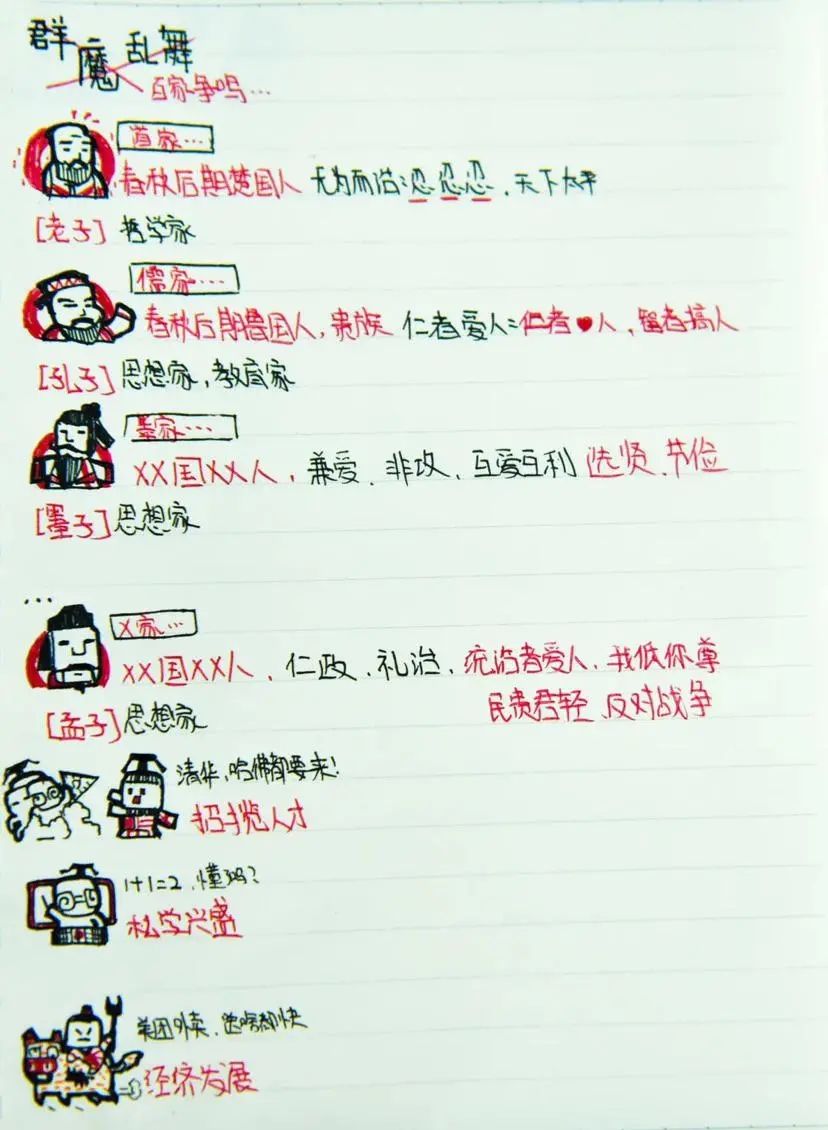 群魔乱舞
百家争鸣…
道家…
春秋后期楚国人 无为而治:忍忍忍,天下太平
[老子] 哲学家
儒家…
春秋后期鲁国人,贵族 仁者爱人:仁者♥人,智者搞人
[孔子] 思想家,教育家
墨家…
XX国XX人,兼爱、非攻,互爱互利 选贤、节俭
[墨子] 思想家
...
X家…
XX国XX人,仁政、礼治,统治者爱人,我低你尊
民贵君轻、反对战争
[孟子] 思想家
清华,哈佛都要来!
招揽人才
1+1=2,懂吗?
私学兴盛
美团外卖,送啥都快
经济发展